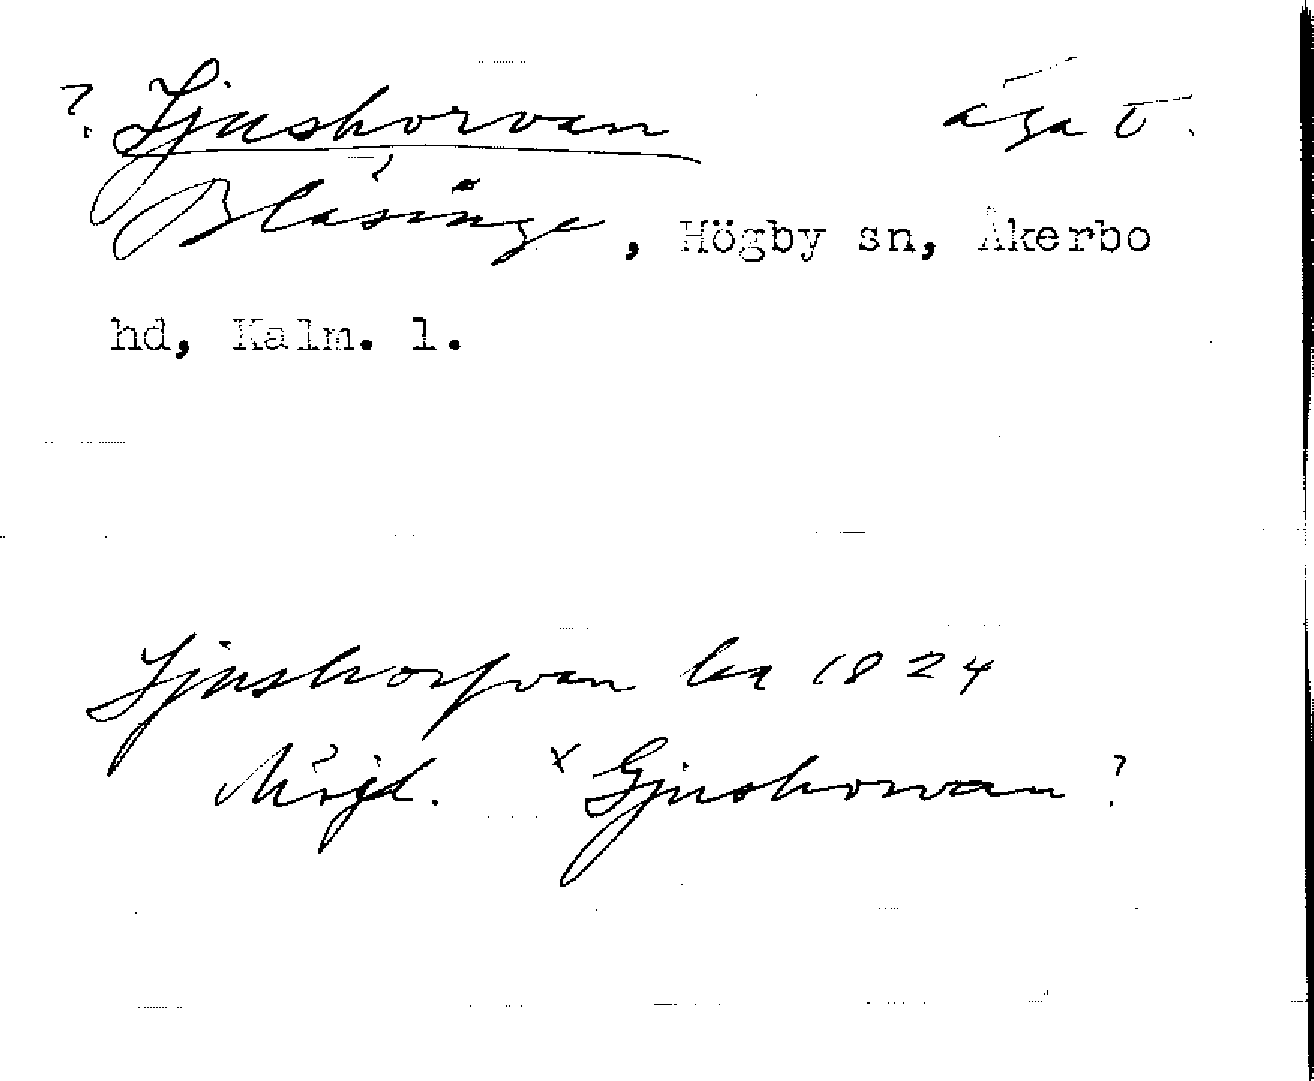 ? Ljushorvan äga Ö.
Blåsinge, Högby sn, Åkerbo
hd, Kalm. l.
Ljushorfvan la 1824
Möjl. × Gjushorvan ?